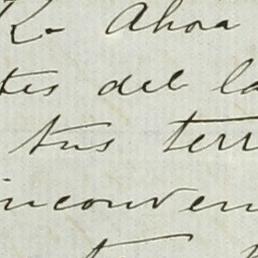 R- Ahora
tes del la
tus terr
inconven